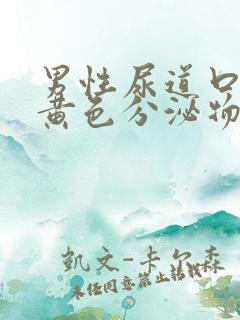 男性尿道口
黄色分泌物
凱文-卡尔森
未经同意禁止转载